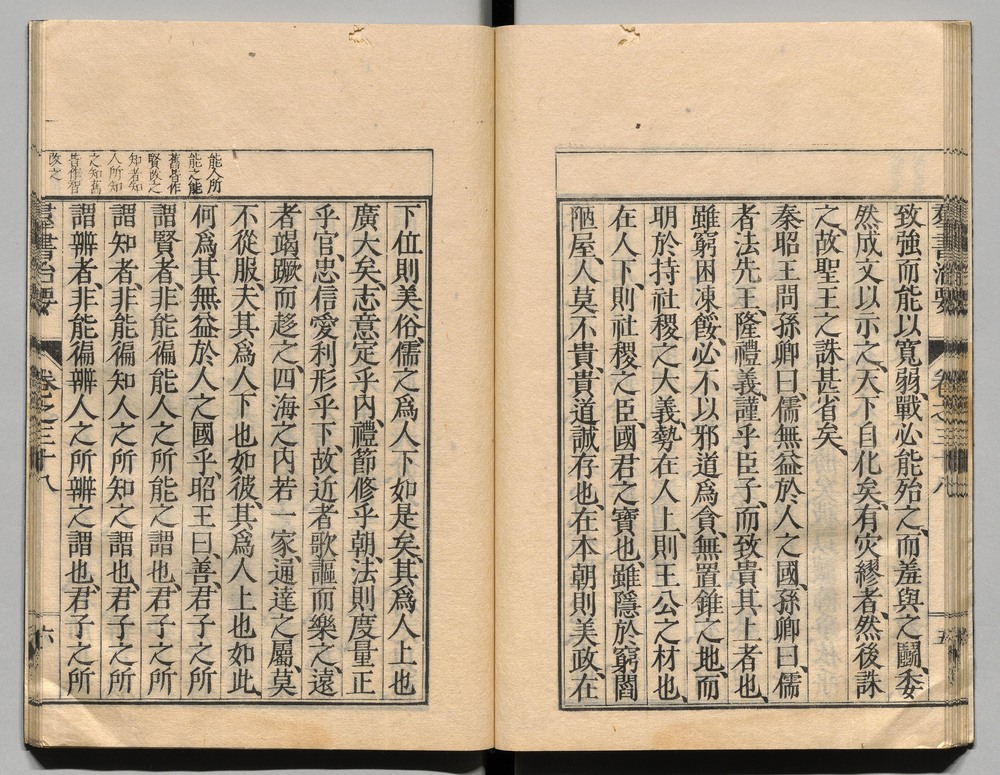 羣書治要 卷之三十八 五
致強而能以寬弱、戰必能殆之、而羞與之鬭、委
然成文以示之、天下自化矣、有灾繆者、然後誅
之、故聖王之誅甚省矣、
秦昭王問孫卿曰、儒無益於人之國、孫卿曰、儒
者法先王、隆禮義、謹乎臣子、而致貴其上者也、
雖窮困凍餒、必不以邪道爲貪、無置錐之地、而
明於持社稷之大義、勢在人上、則王公之材也、
在人下、則社稷之臣、國君之寶也、雖隱於窮閻
陋屋、人莫不貴、貴道誠存也、在本朝則美政、在
下位則美俗、儒之爲人下如是矣、其爲人上也
廣大矣、志意定乎內、禮節修乎朝、法則度量正
乎官、忠信愛利形乎下、故近者歌謳而樂之、遠
者竭蹶而趍之、四海之內若一家、通達之屬、莫
不從服、夫其爲人下也如彼、其爲人上也如此、
何爲其無益於人之國乎、昭王曰、善、君子之所
謂賢者、非能徧能人之所能之謂也、君子之所
謂知者、非能徧知人之所知之謂也、君子之所
謂辨者、非能徧辨人之所辨之謂也、君子之所
能人所
能之能
舊皆作
賢改之
知者知
人所知
之知舊
皆作智
改之
羣書治要 卷之三十八 六